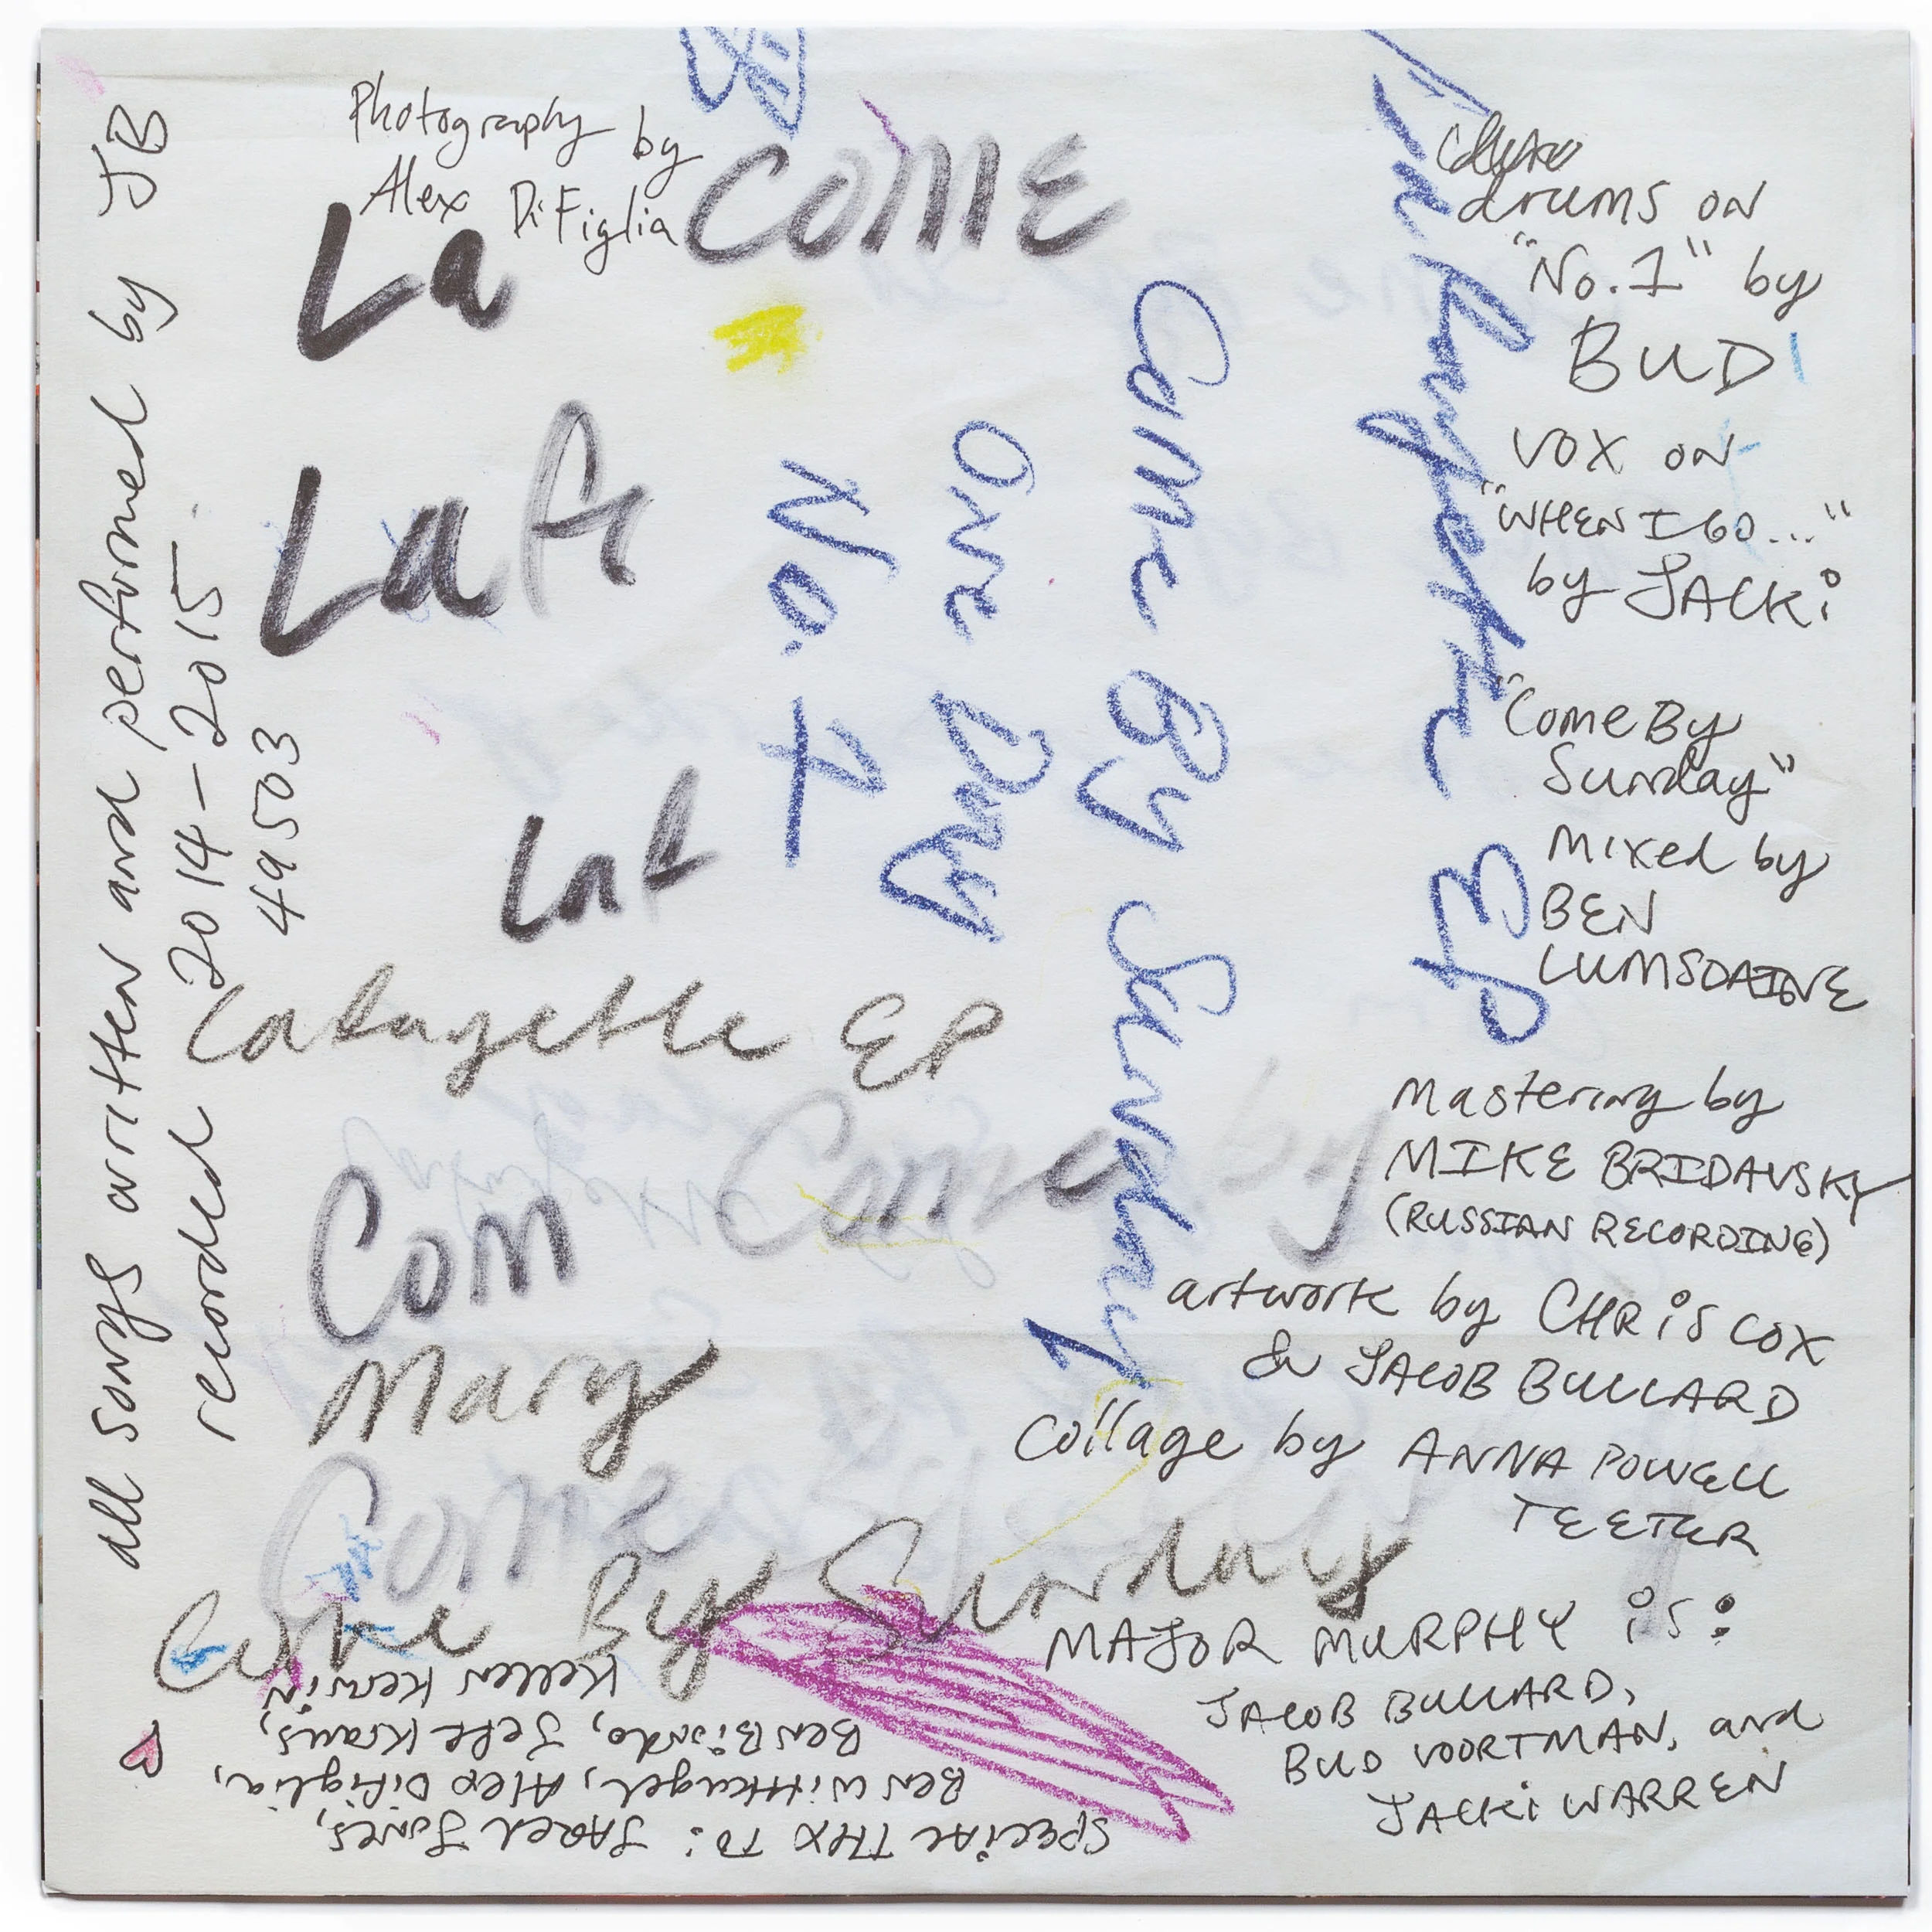 Photography by
Alex DiFiglia
COME
La
Lafa
Laf
Lafayette EP
Com
Come by
Mary
Come
Come By Sunday
all songs written and performed by JB
recorded 2014-2015
49503
No. 1
One Day
Come By Sunday
EP
drums on
"No. 1" by
BUD
VOX ON
"WHEN I GO..."
by JACKi
"Come By
Sunday"
Mixed by
BEN
LUMSDAINE
Mastering by
MIKE BRIDAVSKY
(RUSSIAN RECORDING)
artwork by CHRiS COX
& JACOB BULLARD
Collage by ANNA POWELL
TEETER
MAJOR MURPHY is:
JACOB BULLARD,
BUD VOORTMAN, and
JACKi WARREN
SPECIAL THX TO: JARED JONES,
BEN Wittkugel, Alex DiFiglia,
BEN Biondo, Jeff Kraus,
Kellen Kerwin